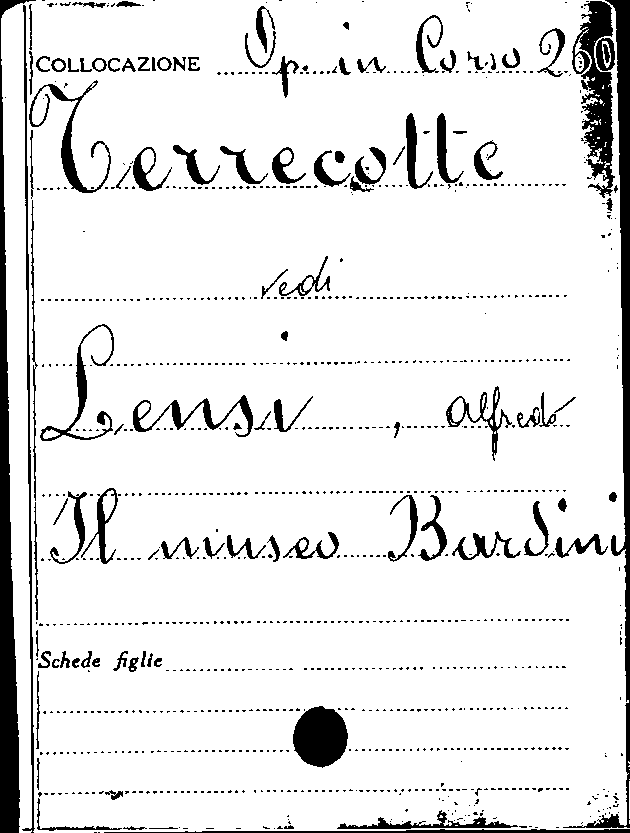 COLLOCAZIONE Op. in Corso 260
Terrecotte
vedi
Lensi, Alfredo
Il museo Bardini
Schede figlie